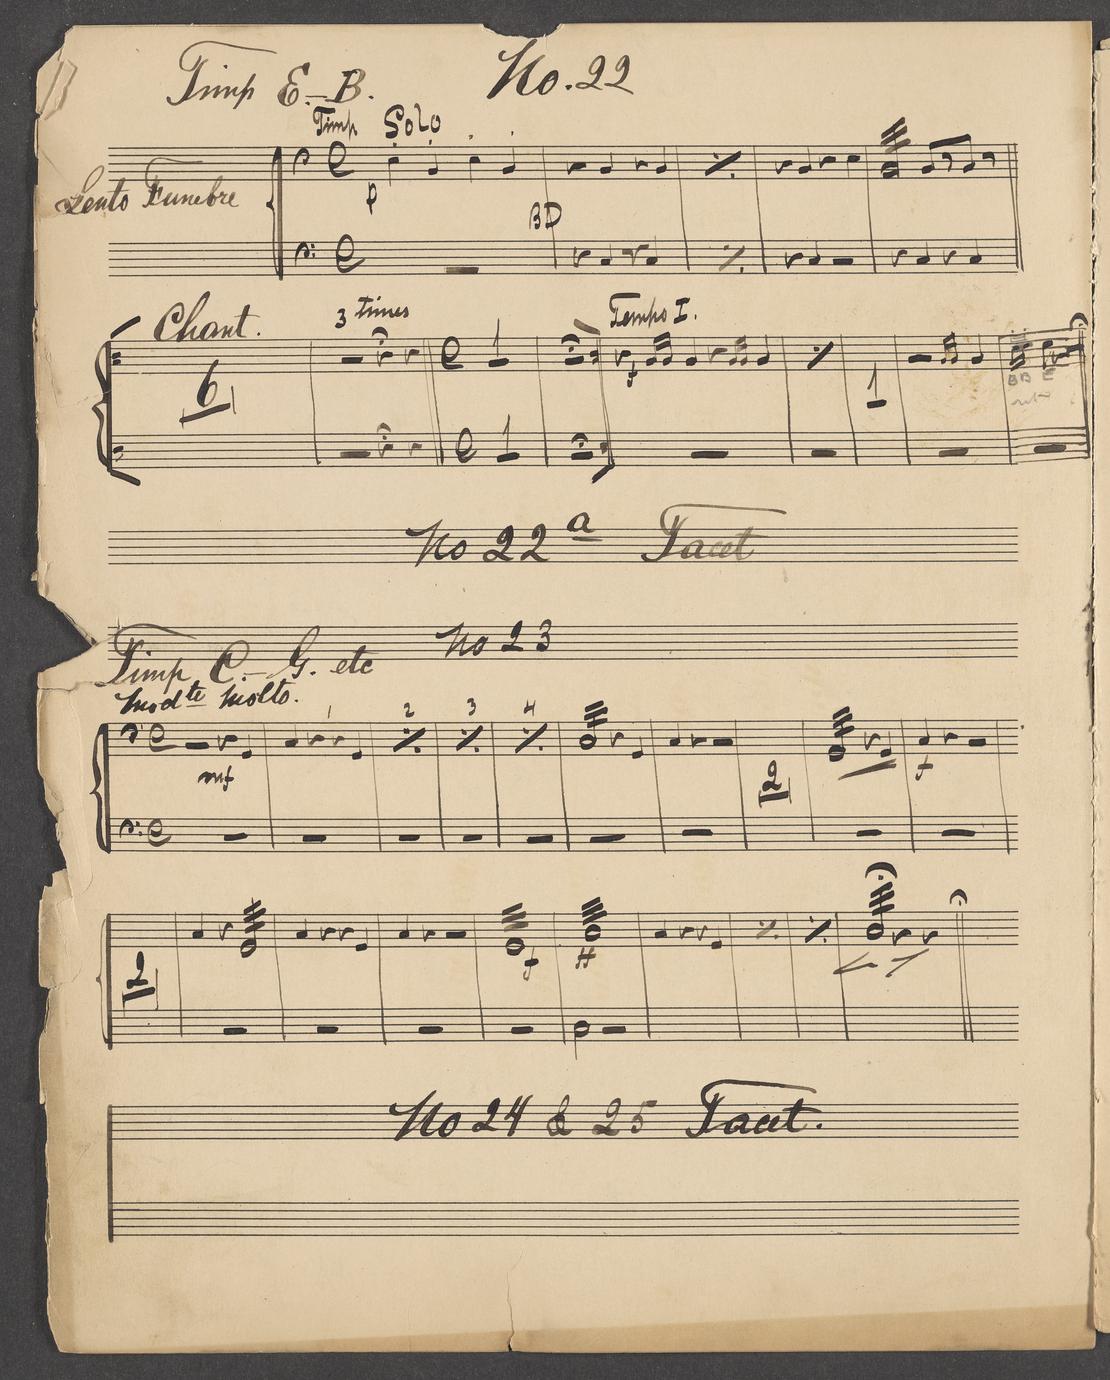 13
Timp E.-B. No. 22
Timp Solo
Lento Funebre
p
BD
Chant. 3 times Tempo I.
6 1 f 1
1
BB E
No 22 a Tacet
Timp C.-G. etc No 23
Mod te Molto.
1 2 3 4
mf 2 f
2 f ff
No 24 & 25 Tacet.